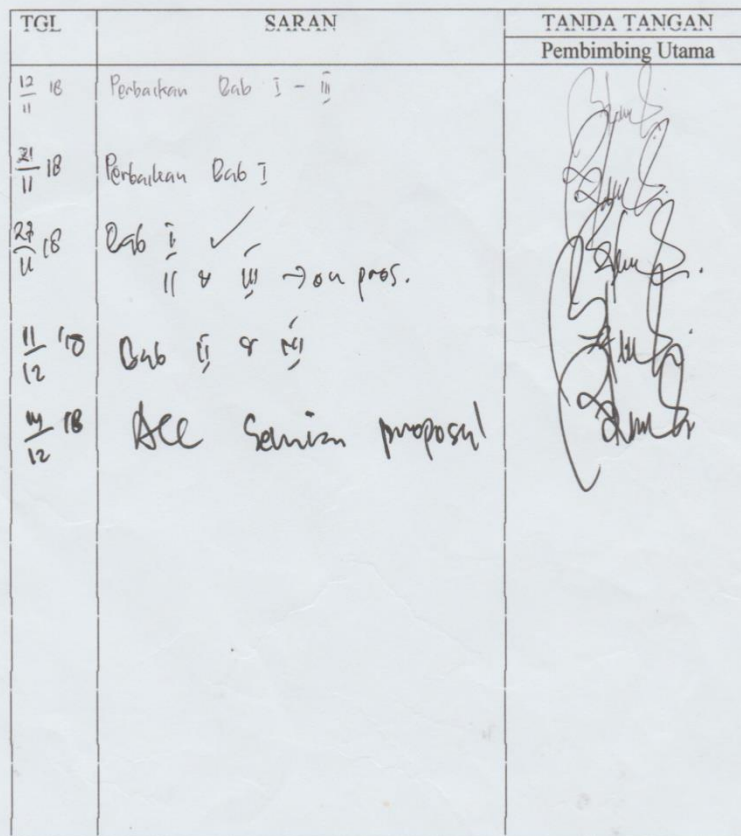 TGL SARAN TANDA TANGAN
Pembimbing Utama
12/11 18 Perbaikan Bab I - III
21/11 18 Perbaikan Bab I
27/11 18 Bab I ✓
II & III → on pros.
11/12 '18 Bab II & III
14/12 18 ACC proposal